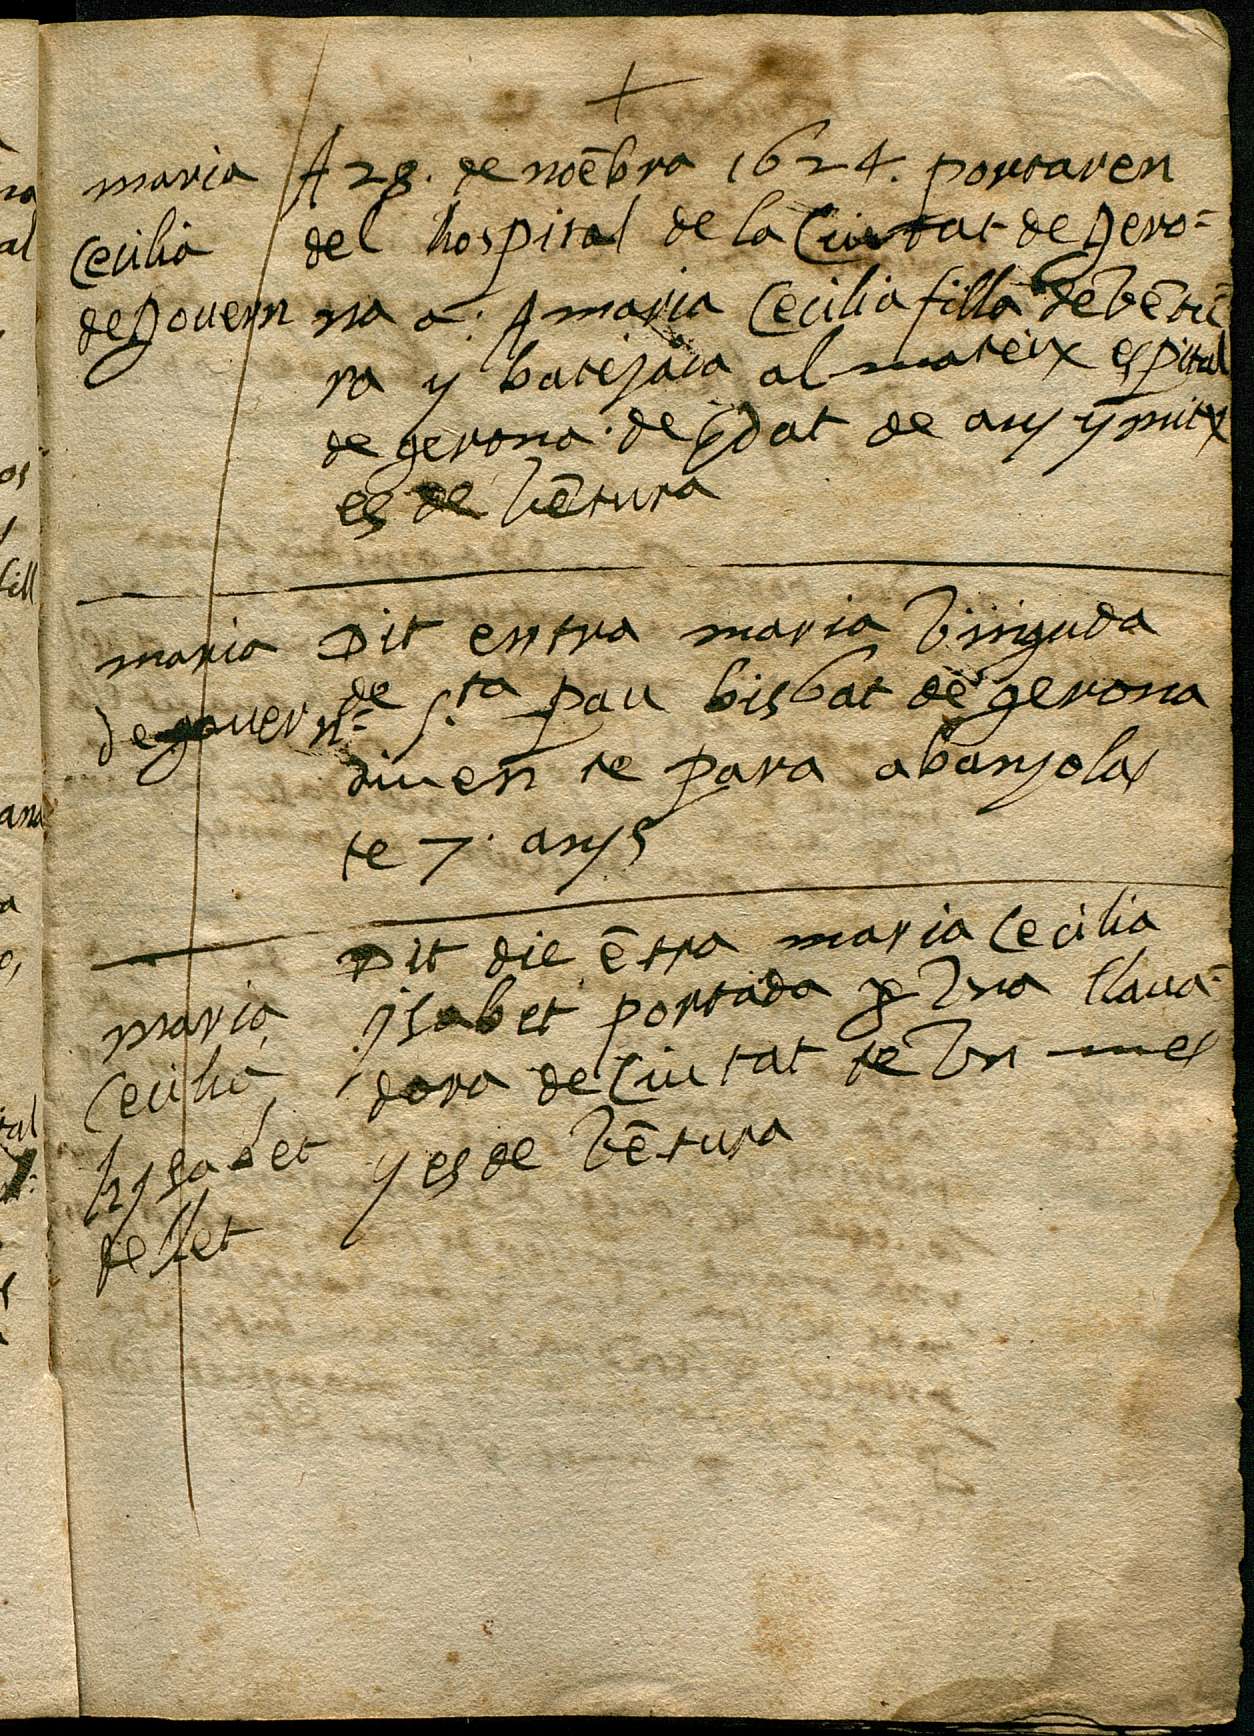 +
maria
Cecilia
de Govern
A 28. de noēbra 1624. portaren
del hospital de la Ciutat de Gero=
na a. A maria Cecilia filla de vētu
ra y batejada al mateix espital
de gerona. de Edat de any y mitx
es de vētura
maria
de govern
Dit entra maria vinguda
de s.ta pau bisbat de gerona
diuen te para a banyolas
te 7. anys
maria
Cecilia
hysabet
de llet
Dit die ētra maria Cecilia
ysabet portada p vna llaua=
dora de Ciutat te vn mes
y es de vētura